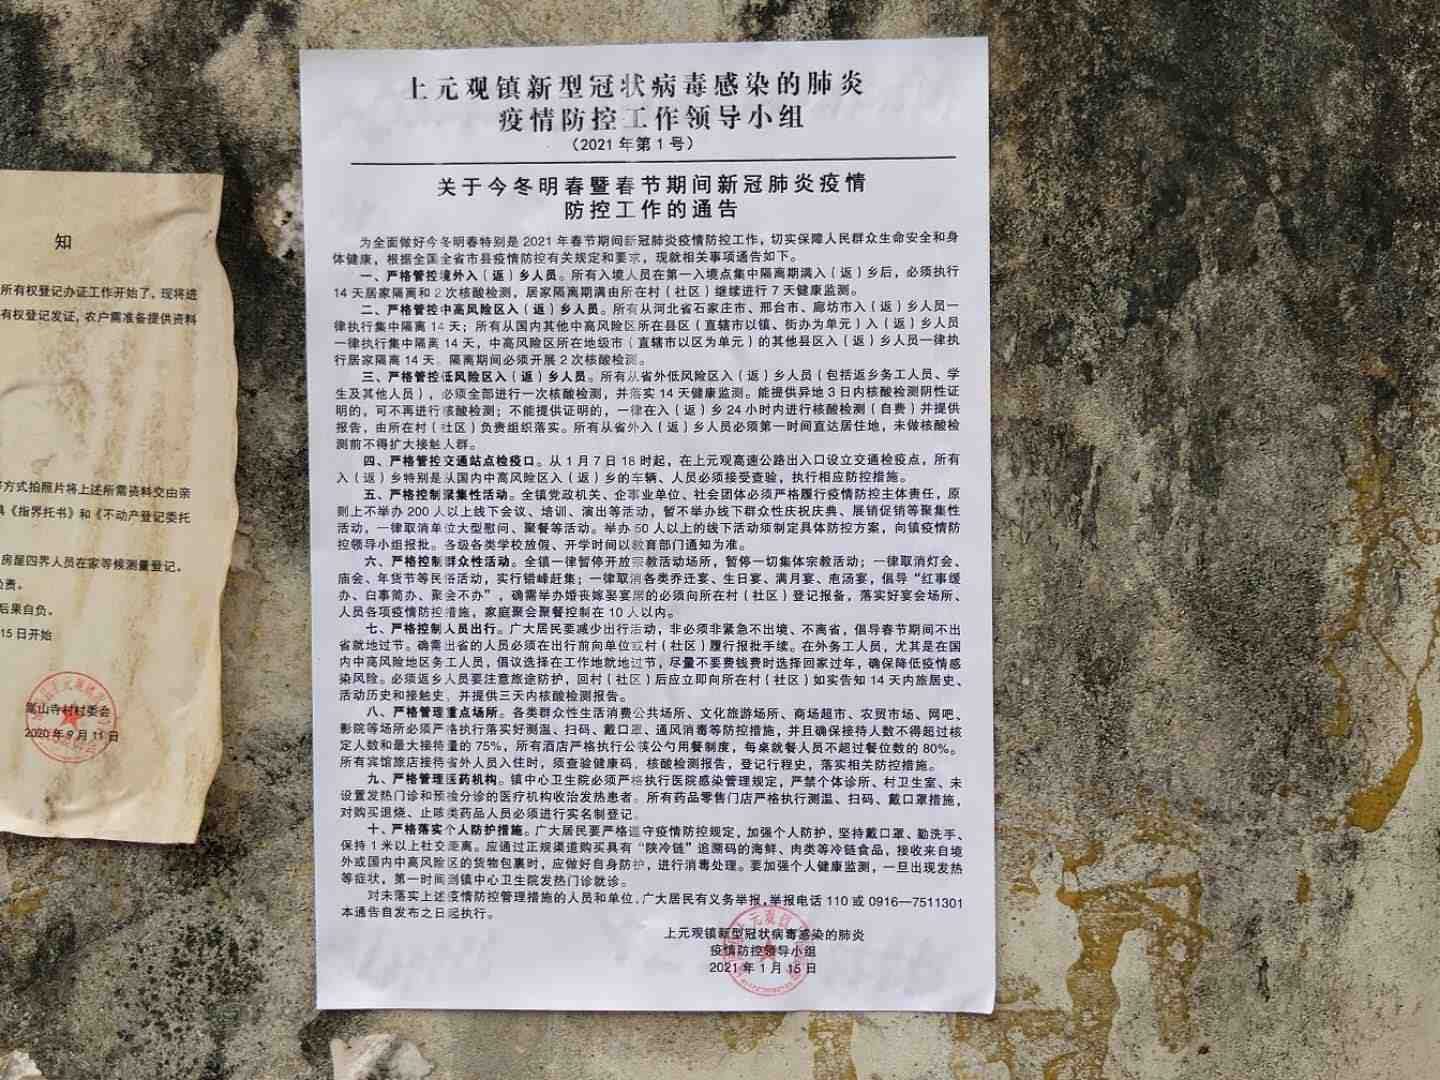 知
所有权登记办证工作开始了，现将进
有权登记发证，农户需准备提供资料
方式拍照片将上述所需资料交由亲
《指界托书》和《不动产登记委托
房屋四界人员在家等候测量登记。
负责。
后果自负。
15日开始
嵩山寺村村委会
2020年9月11日
上元观镇新型冠状病毒感染的肺炎
疫情防控工作领导小组
（2021年第1号）
关于今冬明春暨春节期间新冠肺炎疫情
防控工作的通告
为全面做好今冬明春特别是2021年春节期间新冠肺炎疫情防控工作，切实保障人民群众生命安全和身
体健康，根据全国全省市县疫情防控有关规定和要求，现就相关事项通告如下。
一、严格管控境外入（返）乡人员。所有入境人员在第一入境点集中隔离期满入（返）乡后，必须执行
14天居家隔离和2次核酸检测，居家隔离期满由所在村（社区）继续进行7天健康监测。
二、严格管控中高风险区入（返）乡人员。所有从河北省石家庄市、邢台市、廊坊市入（返）乡人员一
律执行集中隔离14天；所有从国内其他中高风险区所在县区（直辖市以镇、街办为单元）入（返）乡人员
一律执行集中隔离14天，中高风险区所在地级市（直辖市以区为单元）的其他县区入（返）乡人员一律执
行居家隔离14天。隔离期间必须开展2次核酸检测。
三、严格管控低风险区入（返）乡人员。所有从省外低风险区入（返）乡人员（包括返乡务工人员、学
生及其他人员），必须全部进行一次核酸检测，并落实14天健康监测。能提供异地3日内核酸检测阴性证
明的，可不再进行核酸检测；不能提供证明的，一律在入（返）乡24小时内进行核酸检测（自费）并提供
报告，由所在村（社区）负责组织落实。所有从省外入（返）乡人员必须第一时间直达居住地，未做核酸检
测前不得扩大接触人群。
四、严格管控交通站点检疫口。从1月7日18时起，在上元观高速公路出入口设立交通检疫点，所有
入（返）乡特别是从国内中高风险区入（返）乡的车辆、人员必须接受查验，执行相应防控措施。
五、严格控制聚集性活动。全镇党政机关、企事业单位、社会团体必须严格履行疫情防控主体责任，原
则上不举办200人以上线下会议、培训、演出等活动，暂不举办线下群众性庆祝庆典、展销促销等聚集性
活动，一律取消单位大型慰问、聚餐等活动。举办50人以上的线下活动须制定具体防控方案，向镇疫情防
控领导小组报批。各级各类学校放假、开学时间以教育部门通知为准。
六、严格控制群众性活动。全镇一律暂停开放宗教活动场所，暂停一切集体宗教活动；一律取消灯会、
庙会、年货节等民俗活动，实行错峰赶集；一律取消各类乔迁宴、生日宴、满月宴、庖汤宴，倡导“红事缓
办、白事简办、聚会不办”，确需举办婚丧嫁娶宴席的必须向所在村（社区）登记报备，落实好宴会场所、
人员各项疫情防控措施，家庭聚会聚餐控制在10人以内。
七、严格控制人员出行。广大居民要减少出行活动，非必须非紧急不出境、不离省，倡导春节期间不出
省就地过节。确需出省的人员必须在出行前向单位或村（社区）履行报批手续。在外务工人员，尤其是在国
内中高风险地区务工人员，倡议选择在工作地就地过节，尽量不要费钱费时选择回家过年，确保降低疫情感
染风险。必须返乡人员要注意旅途防护，回村（社区）后应立即向所在村（社区）如实告知14天内旅居史、
活动历史和接触史，并提供三天内核酸检测报告。
八、严格管理重点场所。各类群众性生活消费公共场所、文化旅游场所、商场超市、农贸市场、网吧、
影院等场所必须严格执行落实好测温、扫码、戴口罩、通风消毒等防控措施，并且确保接待人数不得超过核
定人数和最大接待量的75%，所有酒店严格执行公筷公勺用餐制度，每桌就餐人员不超过餐位数的80%。
所有宾馆旅店接待省外人员入住时，须查验健康码、核酸检测报告，登记行程史，落实相关防控措施。
九、严格管理医药机构。镇中心卫生院必须严格执行医院感染管理规定，严禁个体诊所、村卫生室、未
设置发热门诊和预检分诊的医疗机构收治发热患者。所有药品零售门店严格执行测温、扫码、戴口罩措施，
对购买退烧、止咳类药品人员必须进行实名制登记。
十、严格落实个人防护措施。广大居民要严格遵守疫情防控规定，加强个人防护，坚持戴口罩、勤洗手、
保持1米以上社交距离。应通过正规渠道购买具有“陕冷链”追溯码的海鲜、肉类等冷链食品，接收来自境
外或国内中高风险区的货物包裹时，应做好自身防护，进行消毒处理。要加强个人健康监测，一旦出现发热
等症状，第一时间到镇中心卫生院发热门诊就诊。
对未落实上述疫情防控管理措施的人员和单位，广大居民有义务举报，举报电话110或0916—7511301
本通告自发布之日起执行。
上元观镇新型冠状病毒感染的肺炎
疫情防控领导小组
2021年1月15日